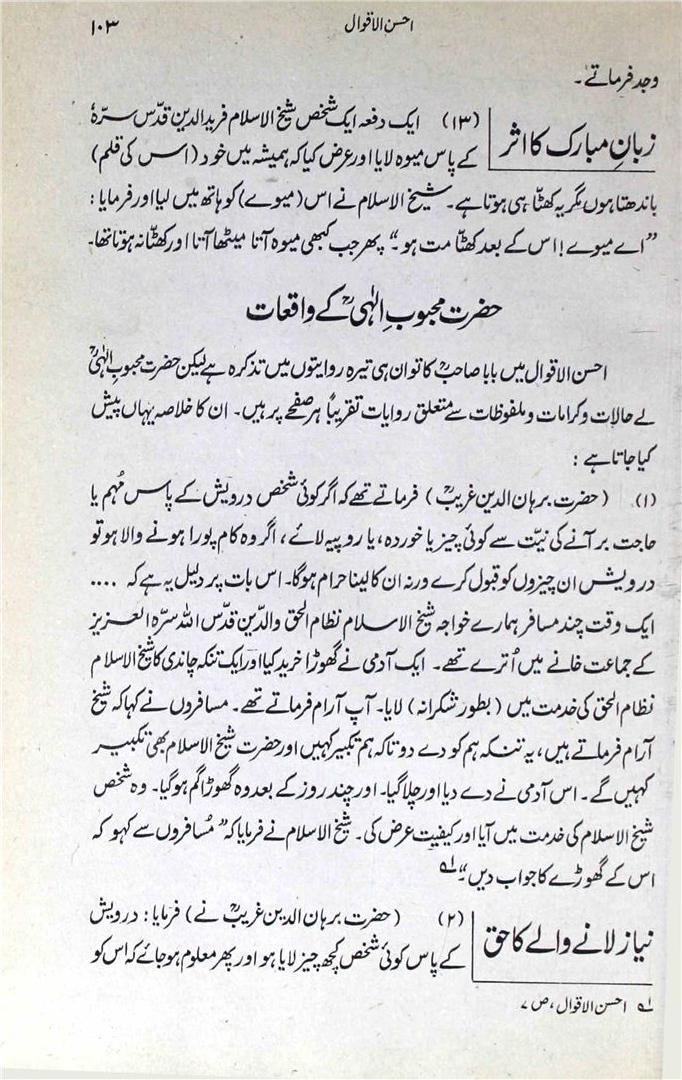 احسن الاقوال ۱۰۳
وجد فرماتے۔
زبانِ مبارک کا اثر
(۱۳) ایک دفعہ ایک شخص شیخ الاسلام فرید الدین قدّس سرّہٗ
کے پاس میوہ لایا اور عرض کیا کہ ہمیشہ میں خود (اس کی قلم)
باندھتا ہوں مگر یہ کھٹّا ہی ہوتا ہے۔ شیخ الاسلام نے اس (میوے) کو ہاتھ میں لیا اور فرمایا:
”اے میوے! اس کے بعد کھٹّا مت ہو۔“ پھر جب کبھی میوہ آتا میٹھا آتا اور کھٹّا نہ ہوتا تھا۔
حضرت محبوبِ الٰہیؒ کے واقعات
احسن الاقوال میں بابا صاحبؒ کا تو ان ہی تیرہ روایتوں میں تذکرہ ہے لیکن حضرت محبوبِ الٰہیؒ
کے حالات و کرامات و ملفوظات سے متعلق روایات تقریباً ہر صفحے پر ہیں۔ ان کا خلاصہ یہاں پیش
کیا جاتا ہے:
(۱) (حضرت برہان الدین غریبؒ) فرماتے تھے کہ اگر کوئی شخص درویش کے پاس مُہم یا
حاجت بر آنے کی نیّت سے کوئی چیز یا خوردہ، یا روپیہ لائے، اگر وہ کام پورا ہونے والا ہو تو
درویش ان چیزوں کو قبول کرے ورنہ ان کا لینا حرام ہوگا۔ اس بات پر دلیل یہ ہے کہ ....
ایک وقت چند مسافر ہمارے خواجہ شیخ الاسلام نظام الحق والدّین قدّس اللہ سرّہ العزیز
کے جماعت خانے میں اُترے تھے۔ ایک آدمی نے گھوڑا خرید کیا اور ایک تنکہ چاندی کا شیخ الاسلام
نظام الحق کی خدمت میں (بطور شکرانہ) لایا۔ آپ آرام فرماتے تھے۔ مسافروں نے کہا کہ شیخ
آرام فرماتے ہیں، یہ تنکہ ہم کو دے دو تاکہ ہم تکبیر کہیں اور حضرت شیخ الاسلام بھی تکبیر
کہیں گے۔ اس آدمی نے دے دیا اور چلا گیا۔ اور چند روز کے بعد وہ گھوڑا گم ہوگیا۔ وہ شخص
شیخ الاسلام کی خدمت میں آیا اور کیفیت عرض کی۔ شیخ الاسلام نے فرمایا کہ ”مُسافروں سے کہو کہ
اس کے گھوڑے کا جواب دیں۔“ ؎۱
نیاز لانے والے کا حق
(۲) (حضرت برہان الدین غریبؒ نے) فرمایا: درویش
کے پاس کوئی شخص کچھ چیز لایا ہو اور پھر معلوم ہو جائے کہ اس کو
؎۱ احسن الاقوال، ص ۷